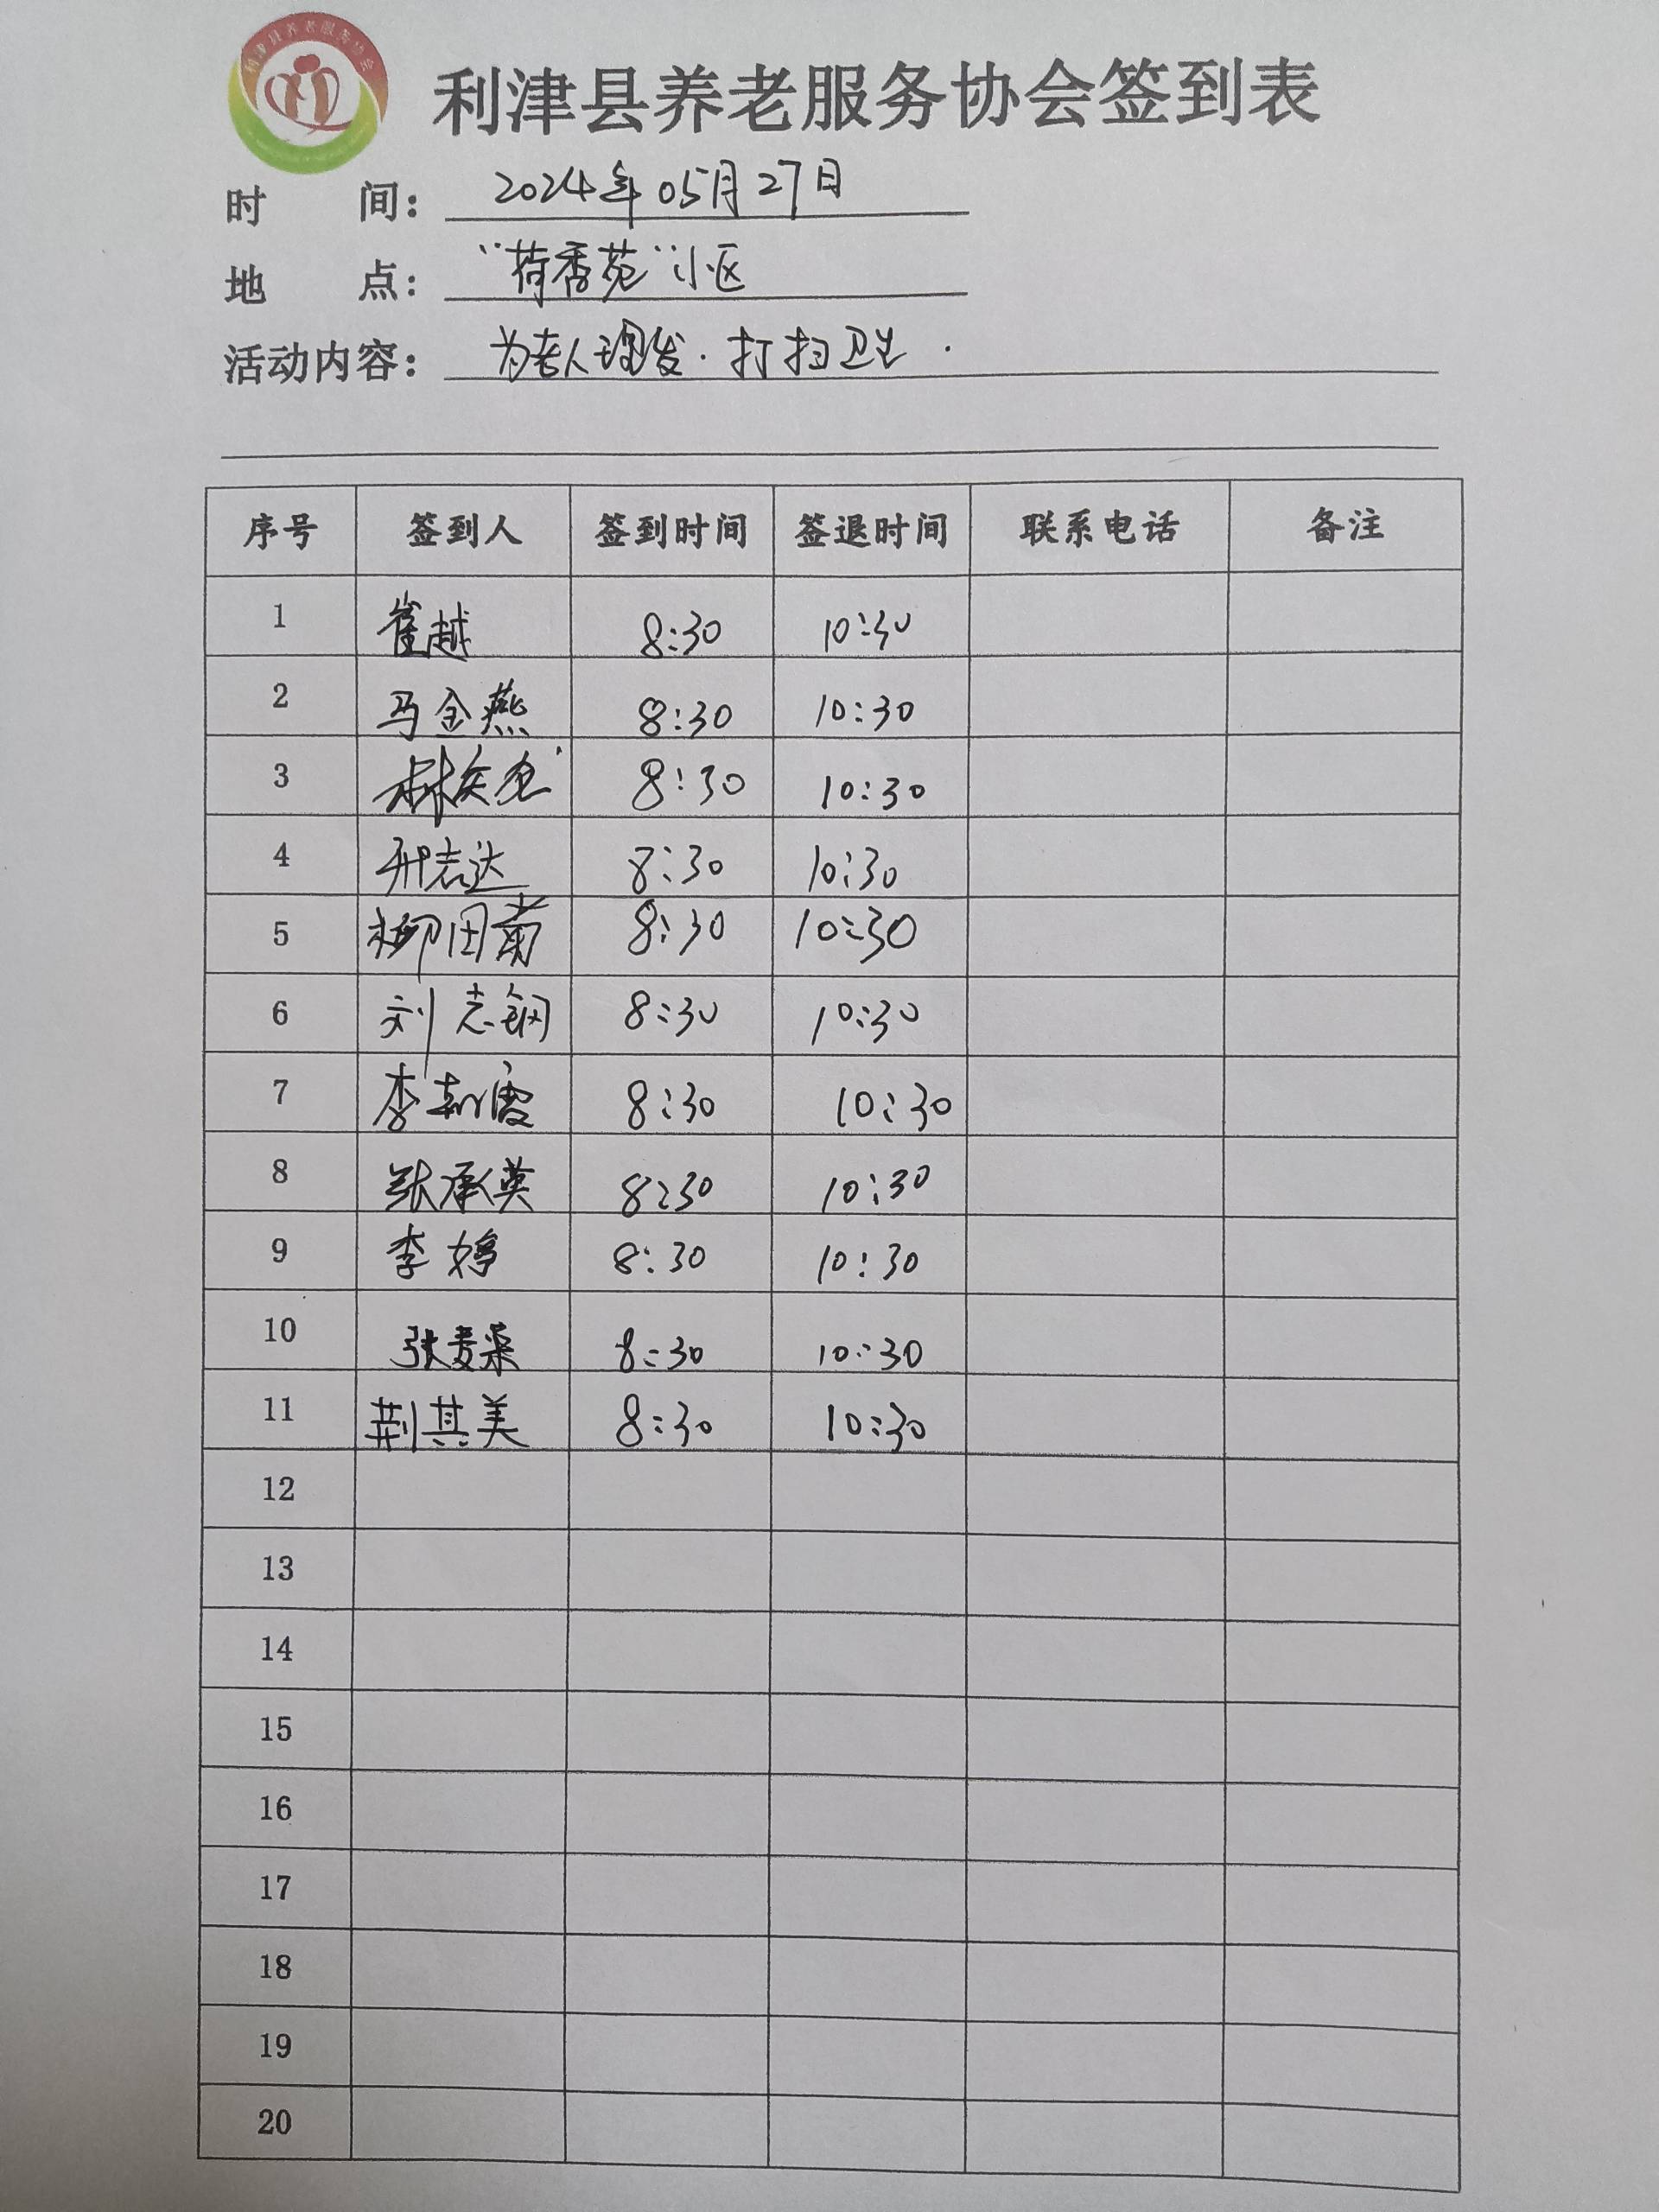 利津县养老服务协会
利津县养老服务协会签到表
时 间： 2024年05月27日
地 点： "荷香苑"小区
活动内容： 为老人理发．打扫卫生．
序号 签到人 签到时间 签退时间 联系电话 备注
1 崔越 8:30 10:30
2 马金燕 8:30 10:30
3 8:30 10:30
4 邢志达 8:30 10:30
5 柳田菊 8:30 10:30
6 刘志钢 8:30 10:30
7 李 霞 8:30 10:30
8 张承英 8:30 10:30
9 李婷 8:30 10:30
10 张 8:30 10:30
11 荆其美 8:30 10:30
12
13
14
15
16
17
18
19
20